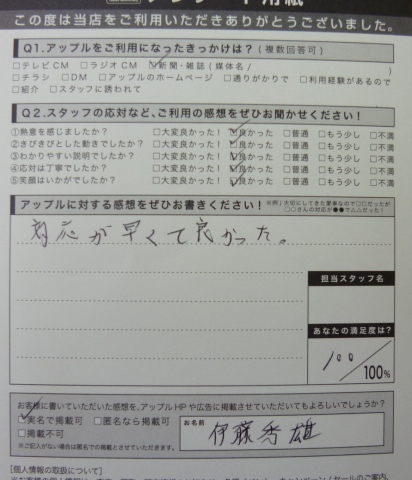 用紙
この度は当店をご利用いただきありがとうございました。
Q1.アップルをご利用になったきっかけは？(複数回答可)
□テレビCM □ラジオCM □新聞・雑誌(媒体名/ )
□チラシ □DM □アップルのホームページ □通りがかりで □利用経験があるので
□紹介 □スタッフに誘われて
Q2.スタッフの応対など、ご利用の感想をぜひお聞かせください！
①熱意を感じましたか？ □大変良かった！ □良かった □普通 □もう少し □不満
②きびきびとした動きでしたか？ □大変良かった！ □良かった □普通 □もう少し □不満
③わかりやすい説明でしたか？ □大変良かった！ □良かった □普通 □もう少し □不満
④応対は丁寧でしたか？ □大変良かった！ □良かった □普通 □もう少し □不満
⑤笑顔はいかがでしたか？ □大変良かった！ □良かった □普通 □もう少し □不満
アップルに対する感想をぜひお書きください！
※例」大切にしてきた愛車なので□□だったが
○○さんの対応が●●で△△だった！
対応が早くて良かった。
担当スタッフ名
あなたの満足度は？
100/100%
お客様に書いていただいた感想を、アップルHPや広告に掲載させていただいてもよろしいでしょうか？
□実名で掲載可 □匿名なら掲載可
□掲載不可
※ご記入がない場合は匿名での掲載とさせていただきます。
お名前
伊藤秀雄
[個人情報の取扱について]